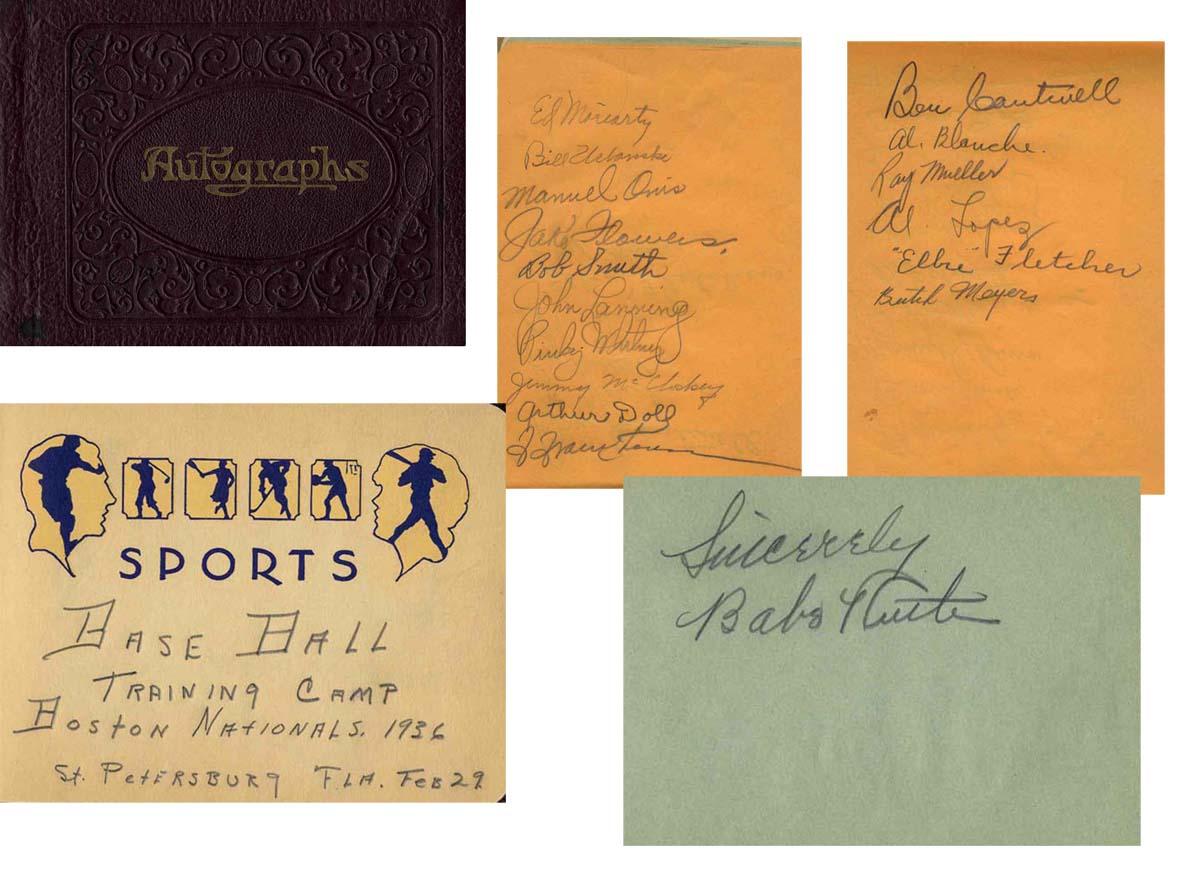 Autographs
Ed Moriarty
Bill Urbanski
Manuel Onis
Jake Flowers.
Bob Smith
John Lanning
Pinky Whitney
Jimmy McCloskey
Arthur Doll
Ben Cantwell
Al. Blanche.
Ray Mueller
Al. Lopez
"Elbie" Fletcher
Butch Meyers
SPORTS
BASE BALL
TRAINING CAMP
BOSTON NATIONALS. 1936
St. PETERSBURG FLA. FEB 29
Sincerely
Babe Ruth